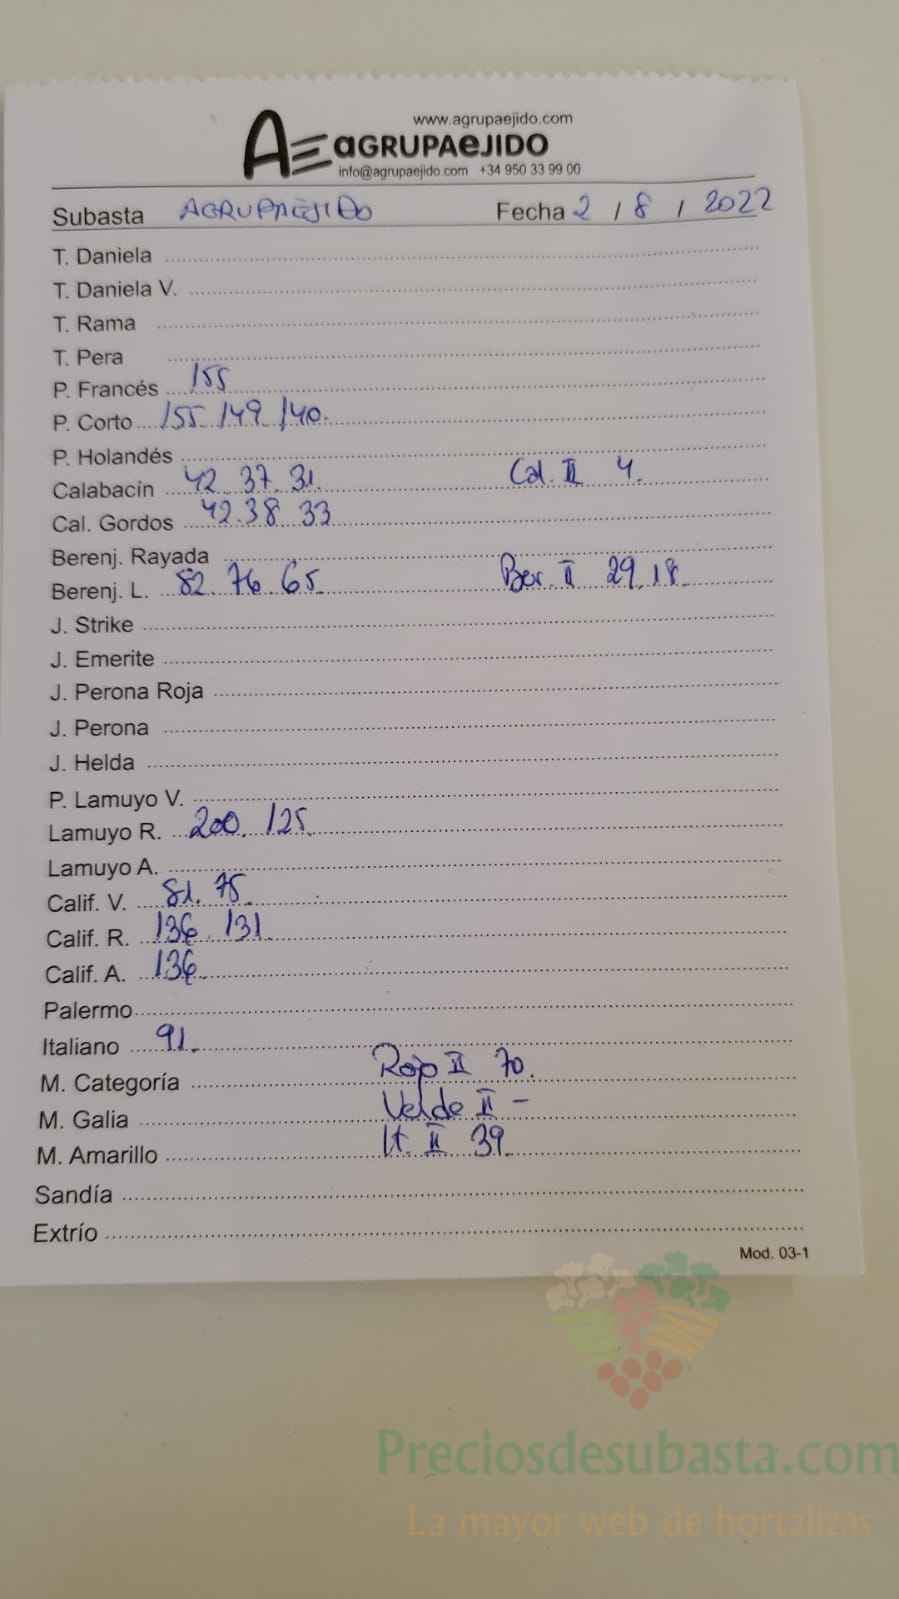 www.agrupaejido.com
AE aGRUPAeJIDO
info@agrupaejido.com +34 950 33 99 00
Subasta AGRUPAEJIDO Fecha 2 / 8 / 2022
T. Daniela
T. Daniela V.
T. Rama
T. Pera
P. Francés 155
P. Corto 155 149 140.
P. Holandés
Calabacín 42. 37. 31. Cal. II 4.
Cal. Gordos 42. 38 33
Berenj. Rayada
Berenj. L. 82. 76. 65. Ber. II 29. 18.
J. Strike
J. Emerite
J. Perona Roja
J. Perona
J. Helda
P. Lamuyo V.
Lamuyo R. 200. 125.
Lamuyo A.
Calif. V. 81. 75.
Calif. R. 136 131.
Calif. A. 136
Palermo
Italiano 91.
M. Categoría Rojo II 70.
M. Galia Verde II -
M. Amarillo It. II 39.
Sandía
Extrío
Mod. 03-1
Preciosdesubasta.com
La mayor web de hortalizas